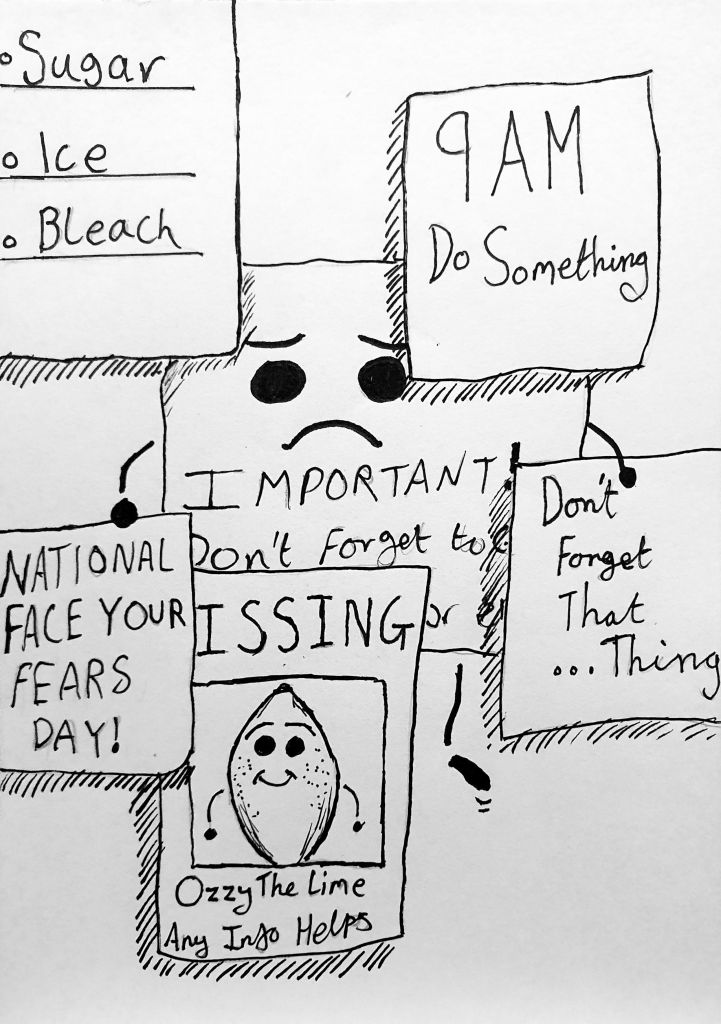 Sugar
Ice
Bleach
9 AM
Do Something
IMPORTANT!
Don't Forget to
or
NATIONAL
FACE YOUR
FEARS
DAY!
ISSING
Ozzy The Lime
Any Info Helps
Don't
Forget
That
...Thing